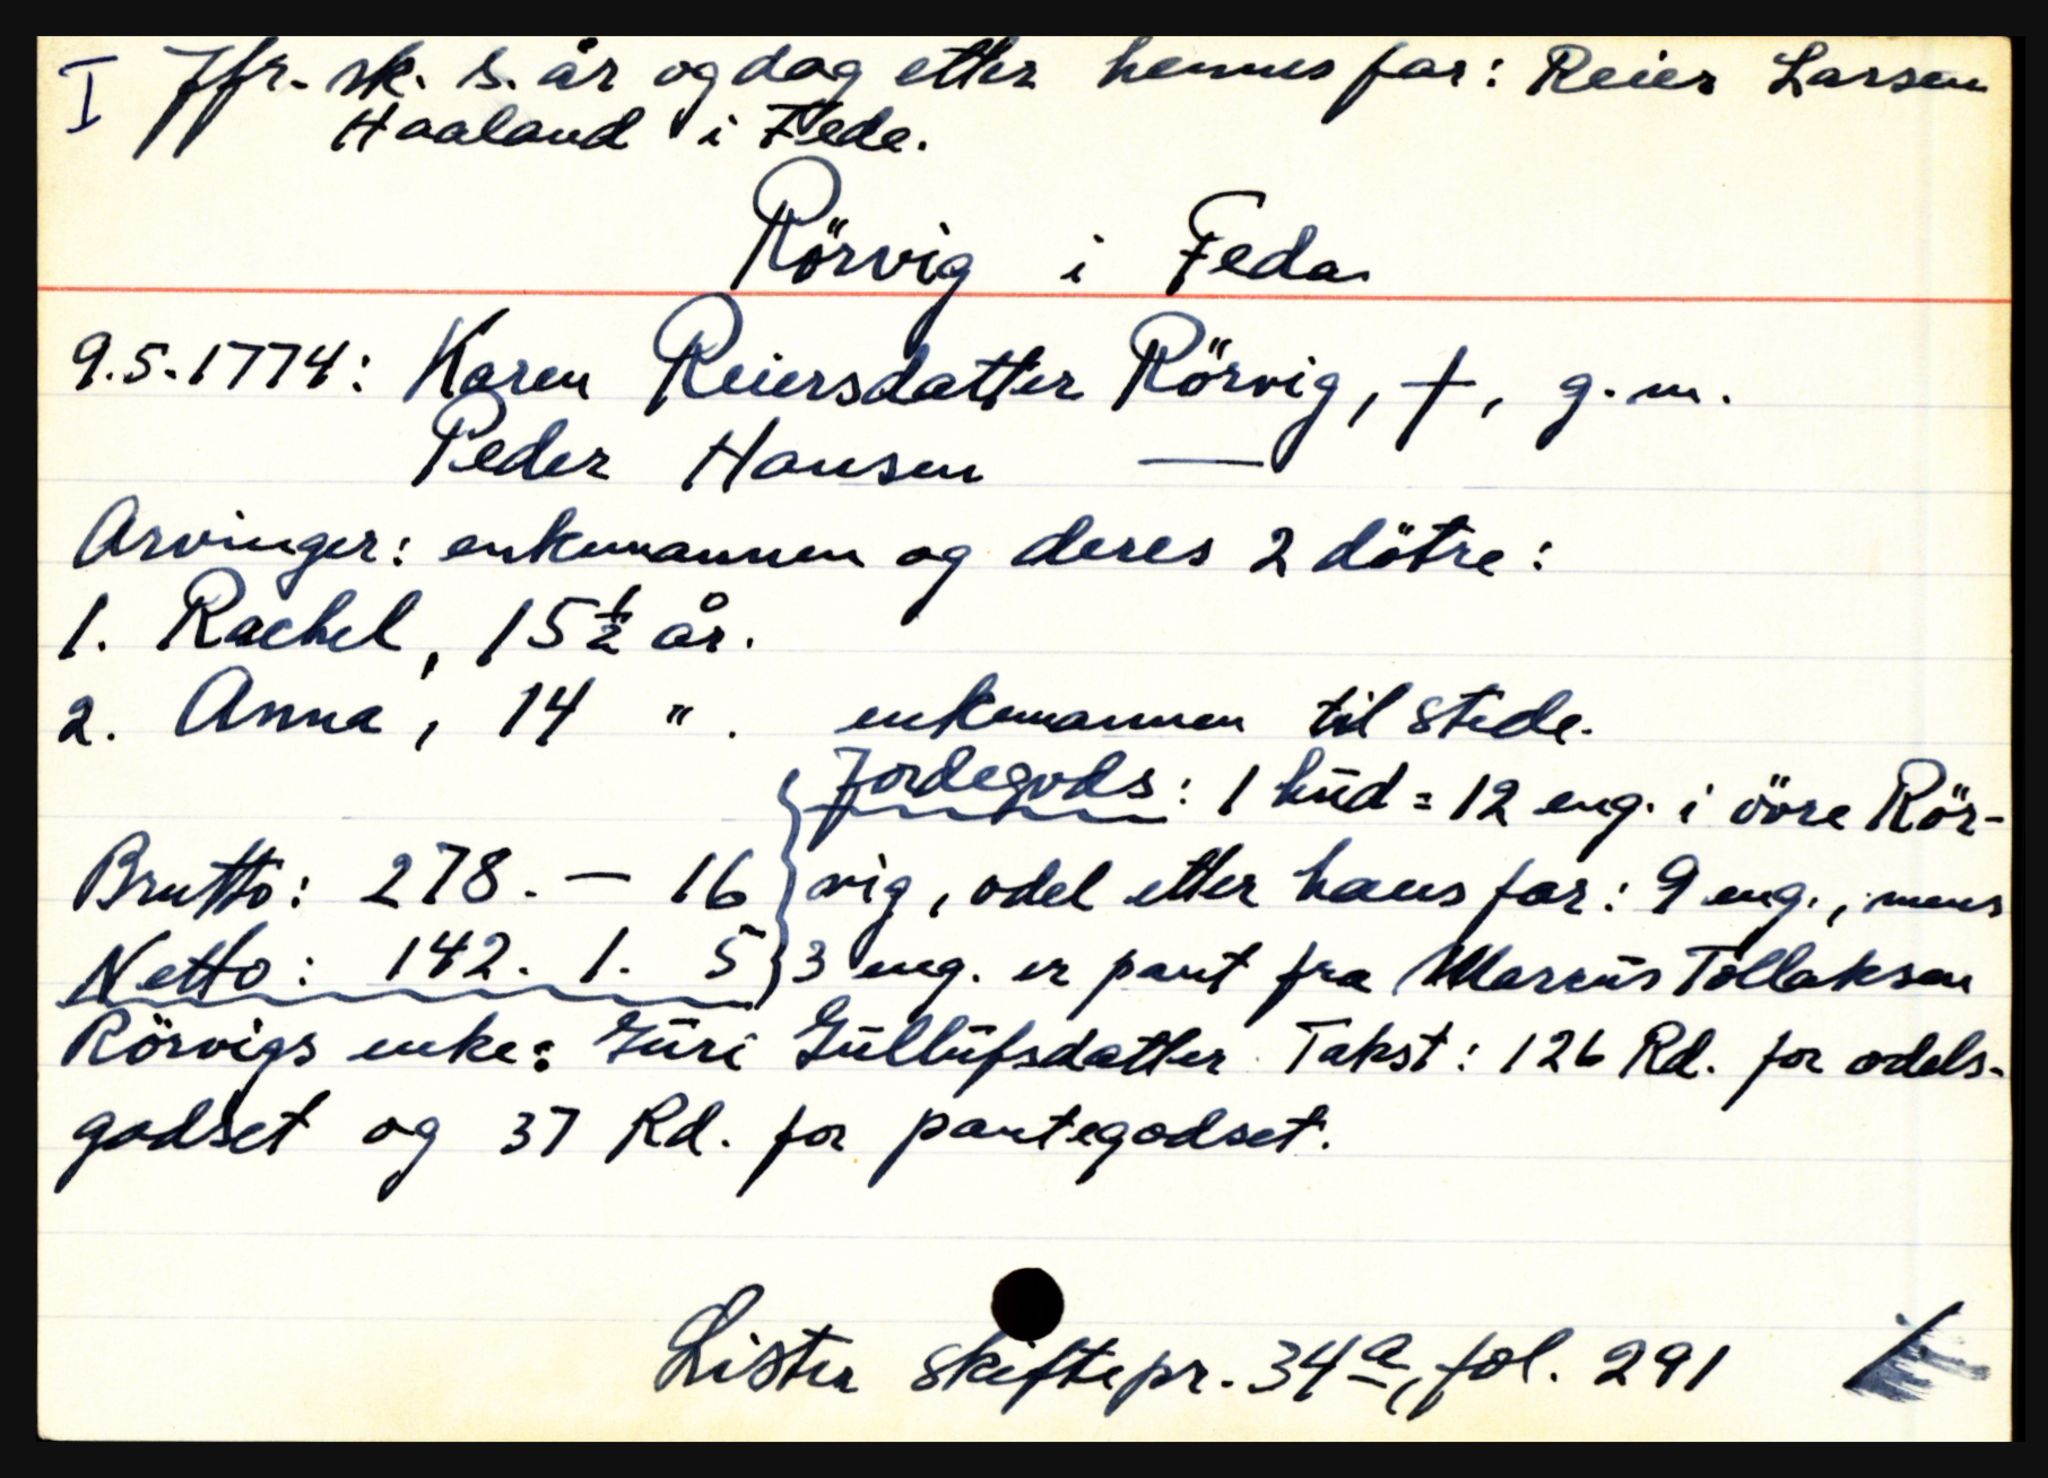 I Jfr. sk. s. år og dag etter hennes far: Reier Larsen
Haaland i Feda.
Rörvig i Feda
9.5.1774: Karen Reiersdatter Rörvig, †, g.m.
Peder Hansen —
Arvinger: enkemannen og deres 2 dötre:
1. Rachel, 15 ½ år.
2. Anna, 14 " . enkemannen til stede.
Jordegods: 1 hud = 12 eng. i övre Rör-
Brutto: 278. — 16 vig, odel etter hans far: 9 eng., mens
Netto: 142. 1. 5 3 eng. er pant fra Marcus Tollaksen
Rörvigs enke: Guri Gullufsdatter. Takst: 126 Rd. for odels-
godset og 37 Rd. for pantegodset.
Lister skiftepr. 34a, fol. 291